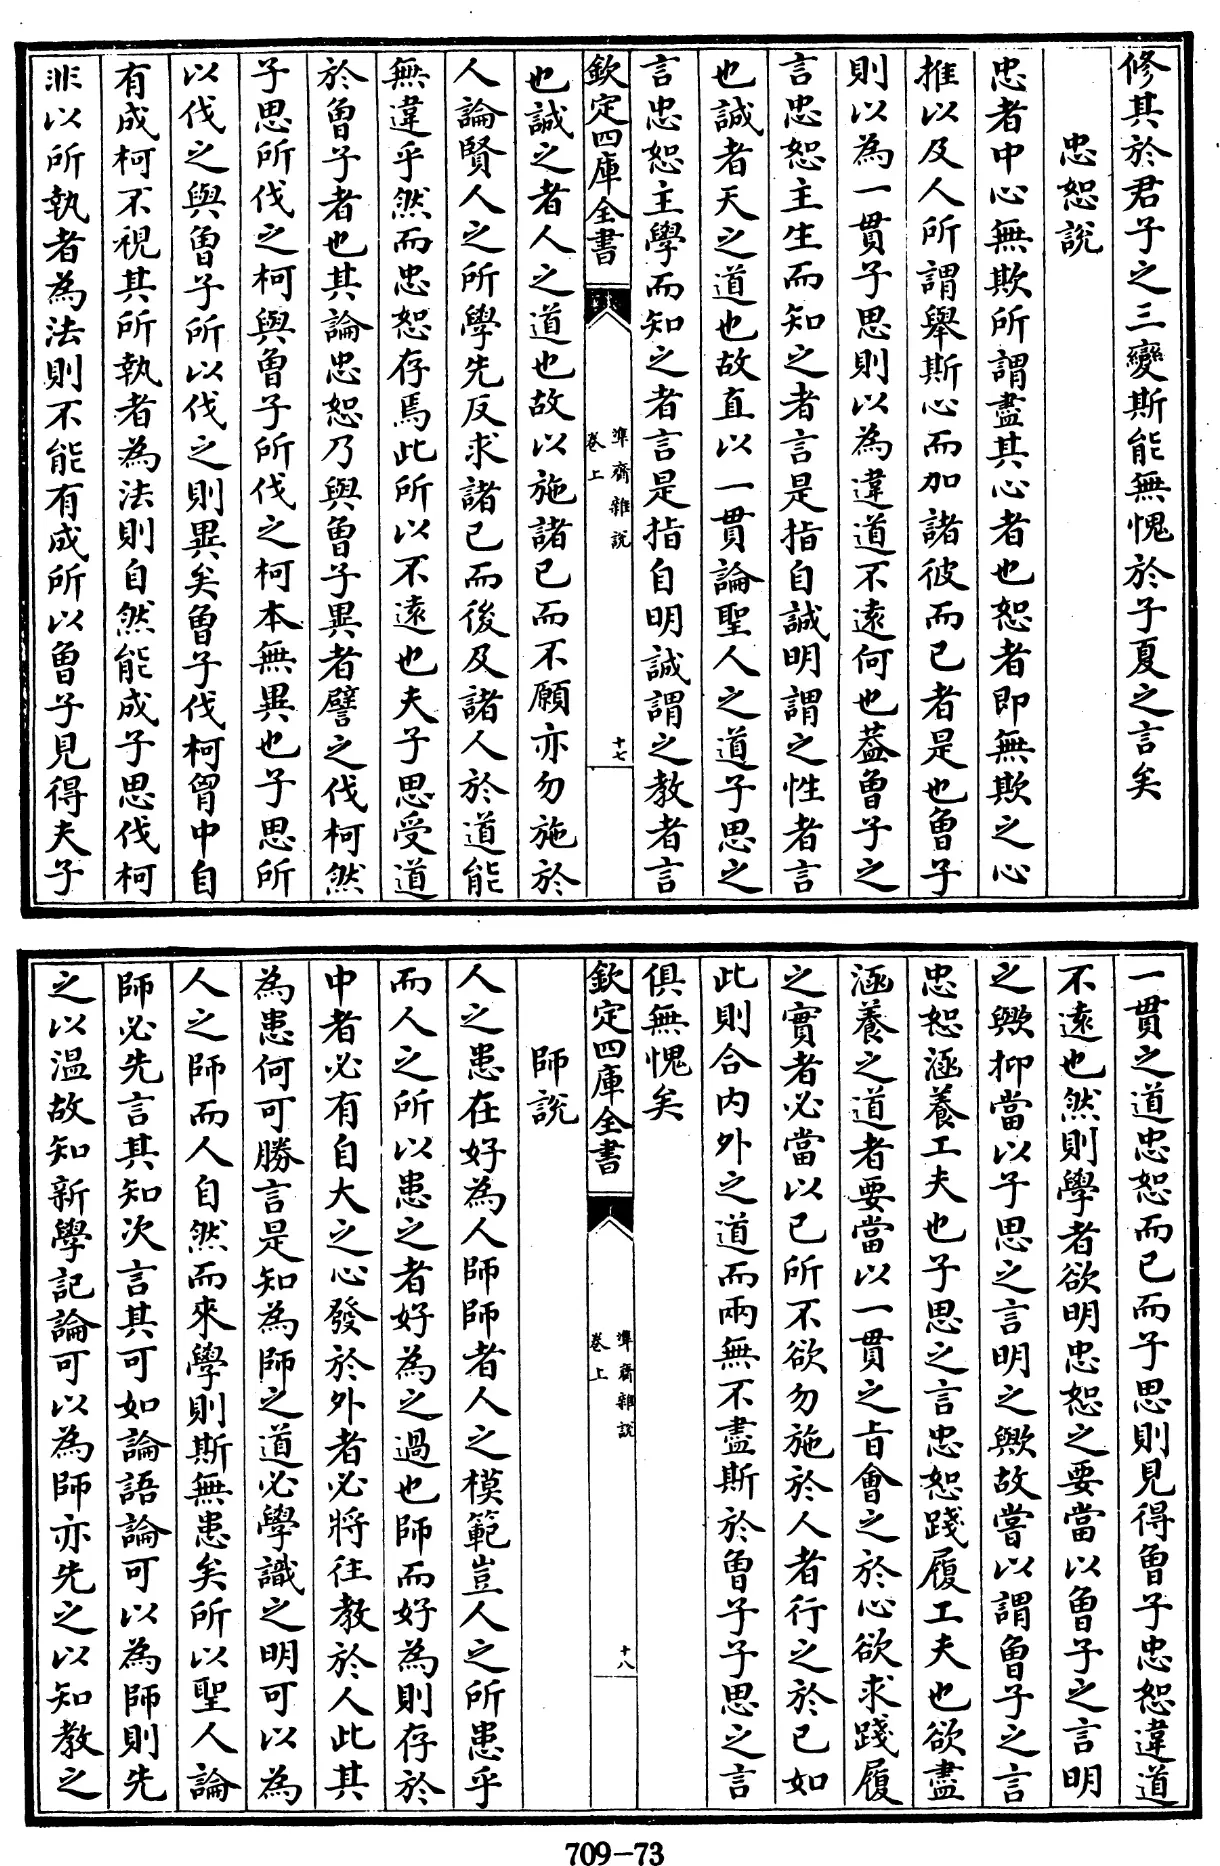 修其於君子之三變斯能無愧於子夏之言矣
忠恕說
忠者中心無欺所謂盡其心者也恕者即無欺之心
推以及人所謂舉斯心而加諸彼而已者是也曾子
則以為一貫子思則以為違道不遠何也葢曾子之
言忠恕主生而知之者言是指自誠明謂之性者言
也誠者天之道也故直以一貫論聖人之道子思之
言忠恕主學而知之者言是指自明誠謂之教者言
欽定四庫全書
準齋雜說
卷上
十七
也誠之者人之道也故以施諸已而不願亦勿施於
人論賢人之所學先反求諸已而後及諸人於道能
無違乎然而忠恕存焉此所以不遠也夫子思受道
於曾子者也其論忠恕乃與曾子異者譬之伐柯然
子思所伐之柯與曾子所伐之柯本無異也子思所
以伐之與曾子所以伐之則異矣曾子伐柯胷中自
有成柯不視其所執者為法則自然能成子思伐柯
非以所執者為法則不能有成所以曾子見得夫子
一貫之道忠恕而已而子思則見得曾子忠恕違道
不遠也然則學者欲明忠恕之要當以曾子之言明
之歟抑當以子思之言明之歟故嘗以謂曾子之言
忠恕涵養工夫也子思之言忠恕踐履工夫也欲盡
涵養之道者要當以一貫之旨會之於心欲求踐履
之實者必當以已所不欲勿施於人者行之於已如
此則合內外之道而兩無不盡斯於曾子子思之言
俱無愧矣
欽定四庫全書
準齋雜說
卷上
十八
師說
人之患在好為人師師者人之模範豈人之所患乎
而人之所以患之者好為之過也師而好為則存於
中者必有自大之心發於外者必將往教於人此其
為患何可勝言是知為師之道必學識之明可以為
人之師而人自然而來學則斯無患矣所以聖人論
師必先言其知次言其可如論語論可以為師則先
之以温故知新學記論可以為師亦先之以知教之
709-73